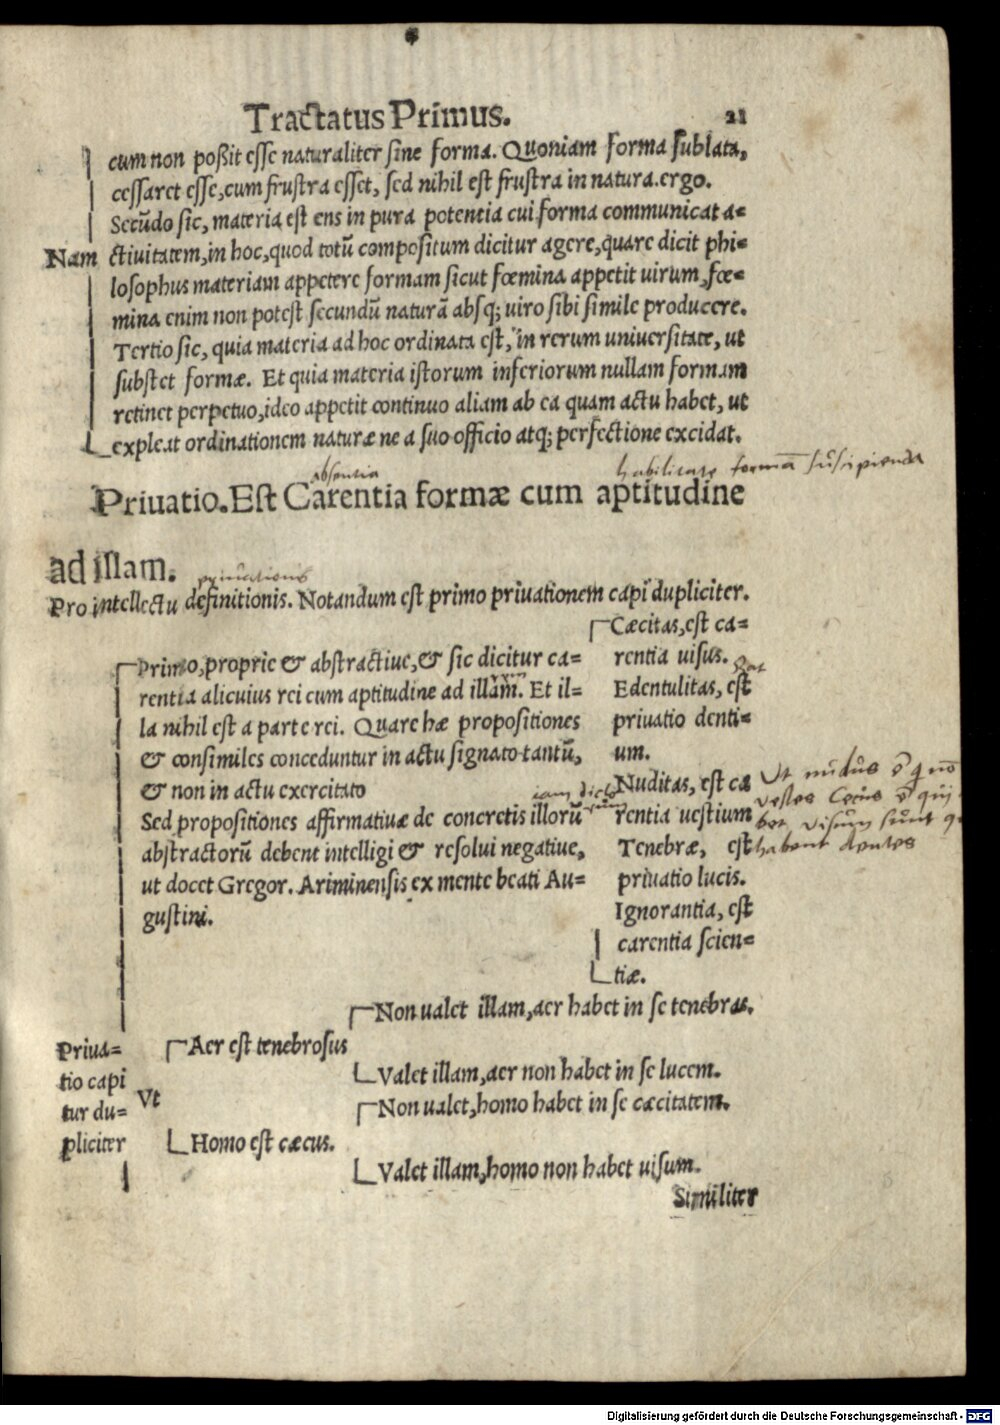 Tractatus Primus. 21
cum non poßit esse naturaliter sine forma. Quoniam forma sublata,
cessaret esse, cum frustra esset, sed nihil est frustra in natura.ergo.
Secũdo sic, materia est ens in pura potentia cui forma communicat a=
Nam ctiuitatem, in hoc, quod totũ compositum dicitur agere, quare dicit phi=
losophus materiam appetere formam sicut fœmina appetit uirum, fœ=
mina enim non potest secundũ naturã absq; uiro sibi simile producere.
Tertio sic, quia materia ad hoc ordinata est, in rerum uniuersitate, ut
substet formæ. Et quia materia istorum inferiorum nullam formam
retinet perpetuo, ideo appetit continuo aliam ab ea quam actu habet, ut
expleat ordinationem naturæ ne a suo officio atq; perfectione excidat.
absentia habilitate formã suscipienda
Priuatio. Est Carentia formæ cum aptitudine
ad illam.
priuationis
Pro intellectu definitionis. Notandum est primo priuationem capi dupliciter.
Primo, proprie & abstractiue, & sic dicitur ca=
rentia alicuius rei cum aptitudine ad illam. Et il=
la nihil est a parte rei. Quare hæ propositiones
& consimiles conceduntur in actu signato tantũ,
& non in actu exercitato
iam dictorum
Sed propositiones affirmatiuæ de concretis illorũ
abstractorũ debent intelligi & resolui negatiue,
ut docet Gregor. Ariminensis ex mente beati Au=
gustini.
Cæcitas, est ca=
rentia uisus.
Edentulitas, est
priuatio denti=
um.
Nuditas, est ca
rentia uestium
Tenebræ, est
priuatio lucis.
Ignorantia, est
carentia scien=
tiæ.
Ut nudus
vestes
visum sunt
habent dentes
Priua=
tio capi
tur du=
pliciter
Vt
Aer est tenebrosus
Non ualet illam, aer habet in se tenebras.
Valet illam, aer non habet in se lucem.
Homo est cæcus.
Non ualet, homo habet in se cæcitatem.
Valet illam, homo non habet uisum.
Similiter
Digitalisierung gefördert durch die Deutsche Forschungsgemeinschaft - DFG